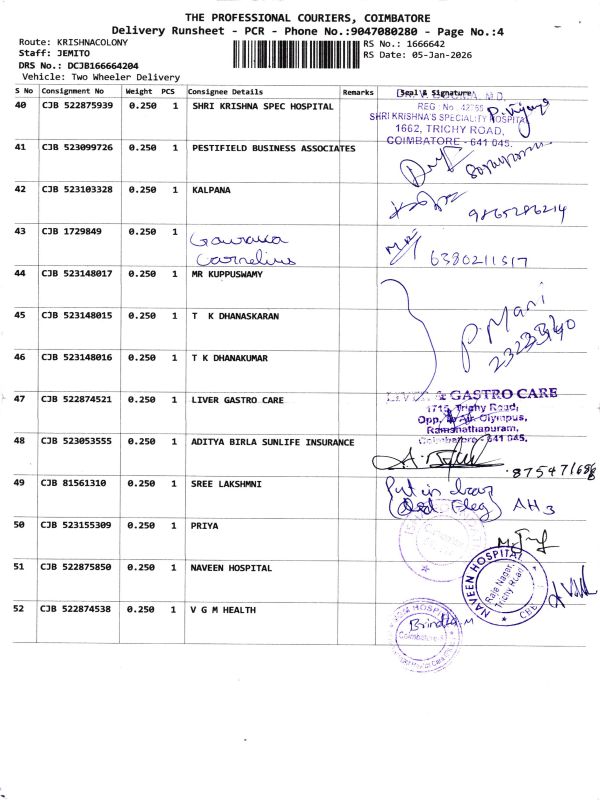 THE PROFESSIONAL COURIERS, COIMBATORE
Delivery Runsheet - PCR - Phone No.:9047080280 - Page No.:4
Route: KRISHNACOLONY
RS No.: 1666642
Staff: JEMITO
RS Date: 05-Jan-2026
DRS No.: DCJB166664204
Vehicle: Two Wheeler Delivery
S No Consignment No Weight PCS Consignee Details Remarks Seal & Signature
40 CJB 522875939 0.250 1 SHRI KRISHNA SPEC HOSPITAL
M.D.
REG. No
SHRI KRISHNA'S SPECIALITY HOSPITAL
1662, TRICHY ROAD,
COIMBATORE - 641 045.
41 CJB 523099726 0.250 1 PESTIFIELD BUSINESS ASSOCIATES
42 CJB 523103328 0.250 1 KALPANA
9865286214
43 CJB 1729849 0.250 1
Cornelius
6380211517
44 CJB 523148017 0.250 1 MR KUPPUSWAMY
P. Mani
45 CJB 523148015 0.250 1 T K DHANASKARAN
46 CJB 523148016 0.250 1 T K DHANAKUMAR
47 CJB 522874521 0.250 1 LIVER GASTRO CARE
LIVER & GASTRO CARE
1715, Trichy Road,
Opp. Olympus,
Ramanathapuram,
Coimbatore - 641 045.
48 CJB 523053555 0.250 1 ADITYA BIRLA SUNLIFE INSURANCE
49 CJB 81561310 0.250 1 SREE LAKSHMNI
Put in
AH3
50 CJB 523155309 0.250 1 PRIYA
51 CJB 522875850 0.250 1 NAVEEN HOSPITAL
NAVEEN HOSPITAL
Raja Nagar,
Trichy Road
CBE
52 CJB 522874538 0.250 1 V G M HEALTH
Brindha M
Coimbatore